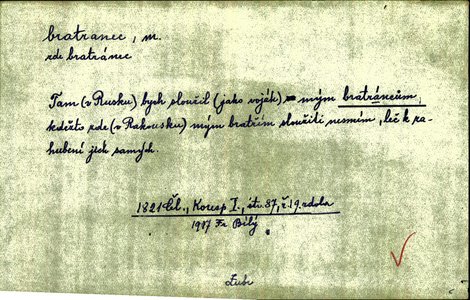 bratranec, m.
zde bratránec
Tam (v Rusku) bych sloužil (jako voják) mým bratráncům,
kdežto zde (v Rakousku) mým bratřím sloužiti nesmím, leč k za-
hubení jich samých.
1821 Čel., Koresp I., str. 87, ř. 19. zdola
1907 Fr. Bílý